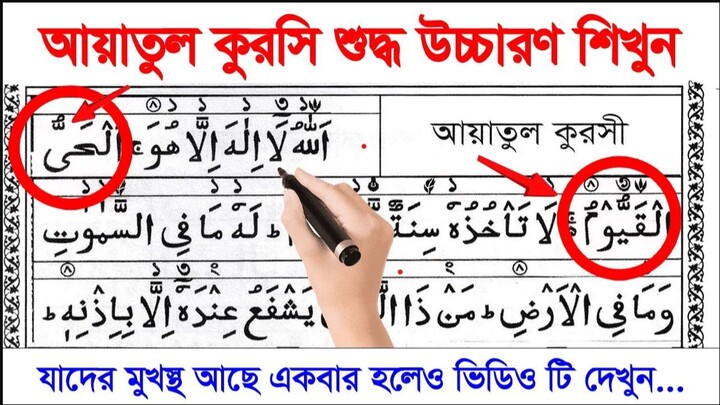 আয়াতুল কুরসি শুদ্ধ উচ্চারণ শিখুন
اَللّٰهُ لَاۤ اِلٰهَ اِلَّا هُوَ ۚ اَلْحَیُّ
আয়াতুল কুরসী
الْقَیُّوْمُ ۚ۬ لَا تَاْخُذُهٗ سِنَةٌ ؕ لَهٗ مَا فِی السَّمٰوٰتِ
وَمَا فِی الْاَرْضِ ؕ مَنْ ذَا یَشْفَعُ عِنْدَهٗۤ اِلَّا بِاِذْنِهٖ ؕ
যাদের মুখস্থ আছে একবার হলেও ভিডিও টি দেখুন...